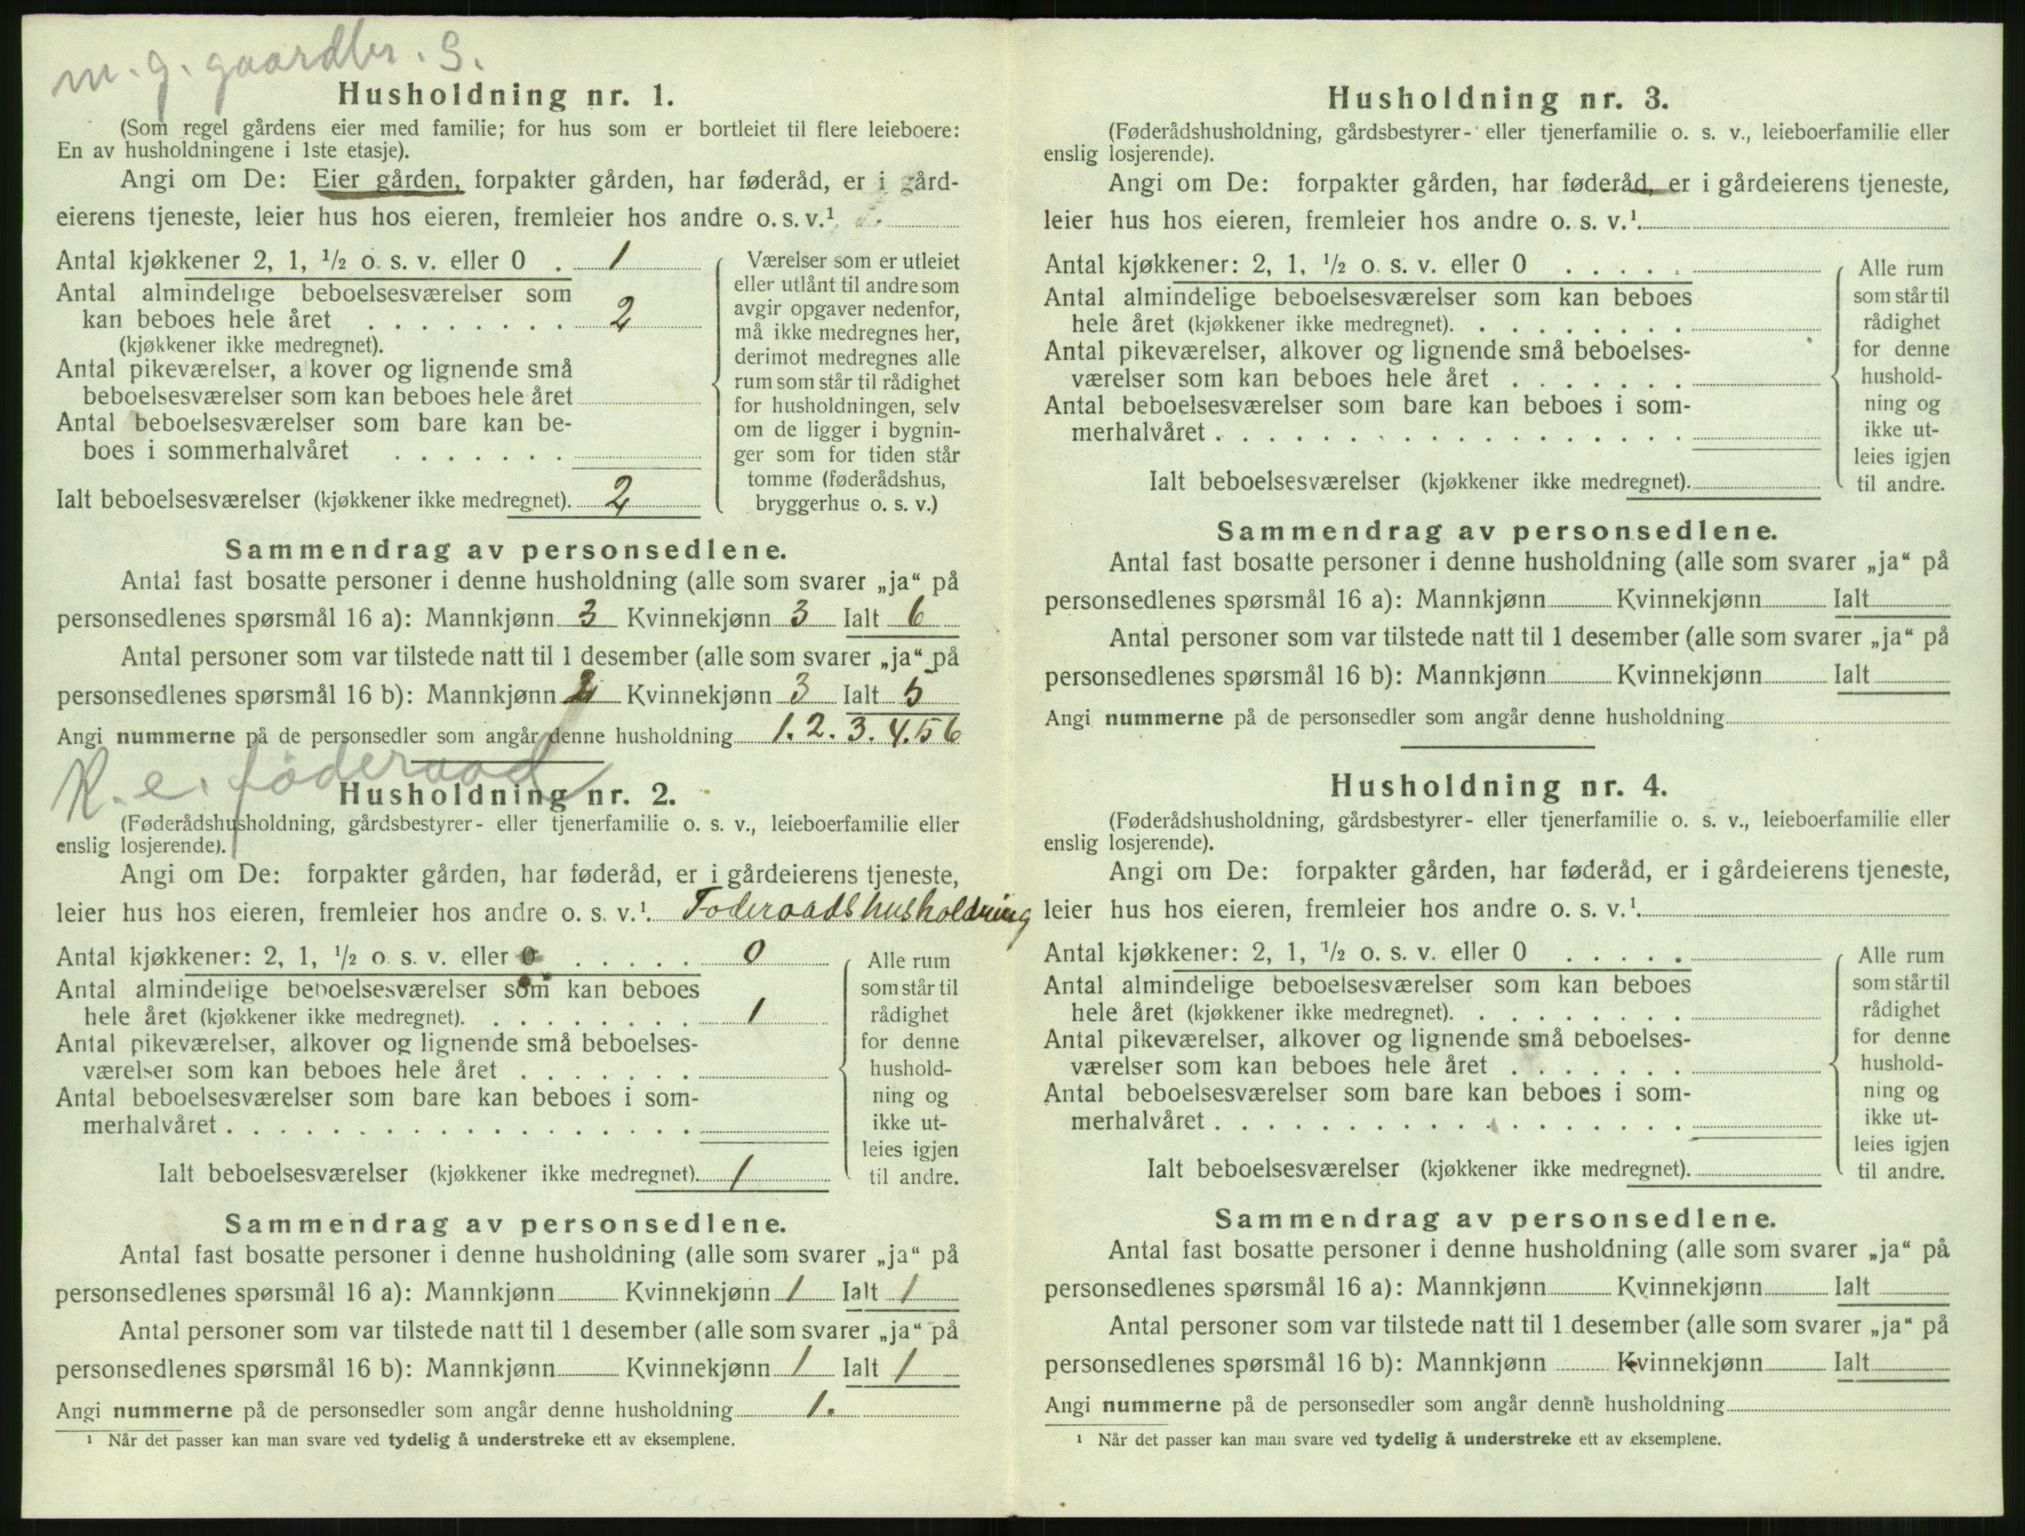 m. g. gaardbr. S.
Husholdning nr. 1.
(Som regel gårdens eier med familie; for hus som er bortleiet til flere leieboere:
En av husholdningene i 1ste etasje).
Angi om De: Eier gården, forpakter gården, har føderåd, er i gård-
eierens tjeneste, leier hus hos eieren, fremleier hos andre o. s. v.¹
Antal kjøkkener 2, 1, ½ o. s. v. eller 0 . 1
Antal almindelige beboelsesværelser som
kan beboes hele året . . . . . . . . 2
(kjøkkener ikke medregnet).
Antal pikeværelser, a kover og lignende små
beboelsesværelser som kan beboes hele året
Antal beboelsesværelser som bare kan be-
boes i sommerhalvåret . . . . . . .
Ialt beboelsesværelser (kjøkkener ikke medregnet). 2
Værelser som er utleiet
eller utlånt til andre som
avgir opgaver nedenfor,
må ikke medregnes her,
derimot medregnes alle
rum som står til rådighet
for husholdningen, selv
om de ligger i bygnin-
ger som for tiden står
tomme (føderådshus,
bryggerhus o. s. v.)
Sammendrag av personsedlene.
Antal fast bosatte personer i denne husholdning (alle som svarer „ja“ på
personsedlenes spørsmål 16 a): Mannkjønn 3 Kvinnekjønn 3 Ialt 6
Antal personer som var tilstede natt til 1 desember (alle som svarer „ja“ på
personsedlenes spørsmål 16 b): Mannkjønn 2 Kvinnekjønn 3 Ialt 5
Angi nummerne på de personsedler som angår denne husholdning 1. 2. 3. 4. 5 6
K. e. föderaad
Husholdning nr. 2.
(Føderådshusholdning, gårdsbestyrer- eller tjenerfamilie o. s. v., leieboerfamilie eller
enslig losjerende).
Angi om De: forpakter gården, har føderåd, er i gårdeierens tjeneste,
leier hus hos eieren, fremleier hos andre o. s. v.¹. Foderaadshusholdning
Antal kjøkkener: 2, 1, ½ o. s. v. eller 0 . . . . . 0
Antal almindelige beboelsesværelser som kan beboes
hele året (kjøkkener ikke medregnet). . . . . . . . . 1
Antal pikeværelser, alkover og lignende små beboelses-
værelser som kan beboes hele året . . . . . . .
Antal beboelsesværelser som bare kan beboes i som-
merhalvåret . . . . . . . . . . . . . . . . . .
Ialt beboelsesværelser (kjøkkener ikke medregnet). 1
Alle rum
som står til
rådighet
for denne
hushold-
ning og
ikke ut-
leies igjen
til andre.
Sammendrag av personsedlene.
Antal fast bosatte personer i denne husholdning (alle som svarer „ja“ på
personsedlenes spørsmål 16 a): Mannkjønn Kvinnekjønn 1 Ialt 1
Antal personer som var tilstede natt til 1 desember (alle som svarer „ja“ på
personsedlenes spørsmål 16 b): Mannkjønn Kvinnekjønn 1 Ialt 1
Angi nummerne på de personsedler som angår denne husholdning 1.
¹ Når det passer kan man svare ved tydelig å understreke ett av eksemplene.
Husholdning nr. 3.
(Føderådshusholdning, gårdsbestyrer- eller tjenerfamilie o. s. v., leieboerfamilie eller
enslig losjerende).
Angi om De: forpakter gården, har føderåd, er i gårdeierens tjeneste,
leier hus hos eieren, fremleier hos andre o. s. v.¹.
Antal kjøkkener: 2, 1, ½ o. s. v. eller 0 . . . . .
Antal almindelige beboelsesværelser som kan beboes
hele året (kjøkkener ikke medregnet). . . . . . . . .
Antal pikeværelser, alkover og lignende små beboelses-
værelser som kan beboes hele året . . . . . . .
Antal beboelsesværelser som bare kan beboes i som-
merhalvåret . . . . . . . . . . . . . . . . . .
Ialt beboelsesværelser (kjøkkener ikke medregnet).
Alle rum
som står til
rådighet
for denne
hushold-
ning og
ikke ut-
leies igjen
til andre.
Sammendrag av personsedlene.
Antal fast bosatte personer i denne husholdning (alle som svarer „ja“ på
personsedlenes spørsmål 16 a): Mannkjønn Kvinnekjønn Ialt
Antal personer som var tilstede natt til 1 desember (alle som svarer „ja“ på
personsedlenes spørsmål 16 b): Mannkjønn Kvinnekjønn Ialt
Angi nummerne på de personsedler som angår denne husholdning
Husholdning nr. 4.
(Føderådshusholdning, gårdsbestyrer- eller tjenerfamilie o. s. v., leieboerfamilie eller
enslig losjerende).
Angi om De: forpakter gården, har føderåd, er i gårdeierens tjeneste,
leier hus hos eieren, fremleier hos andre o. s. v.¹.
Antal kjøkkener: 2, 1, ½ o. s. v. eller 0 . . . . .
Antal almindelige beboelsesværelser som kan beboes
hele året (kjøkkener ikke medregnet). . . . . . . . .
Antal pikeværelser, alkover og lignende små beboelses-
værelser som kan beboes hele året . . . . . . .
Antal beboelsesværelser som bare kan beboes i som-
merhalvåret . . . . . . . . . . . . . . . . . .
Ialt beboelsesværelser (kjøkkener ikke medregnet).
Alle rum
som står til
rådighet
for denne
hushold-
ning og
ikke ut-
leies igjen
til andre.
Sammendrag av personsedlene.
Antal fast bosatte personer i denne husholdning (alle som svarer „ja“ på
personsedlenes spørsmål 16 a): Mannkjønn Kvinnekjønn Ialt
Antal personer som var tilstede natt til 1 desember (alle som svarer „ja“ på
personsedlenes spørsmål 16 b): Mannkjønn Kvinnekjønn Ialt
Angi nummerne på de personsedler som angår denne husholdning
¹ Når det passer kan man svare ved tydelig å understreke ett av eksemplene.